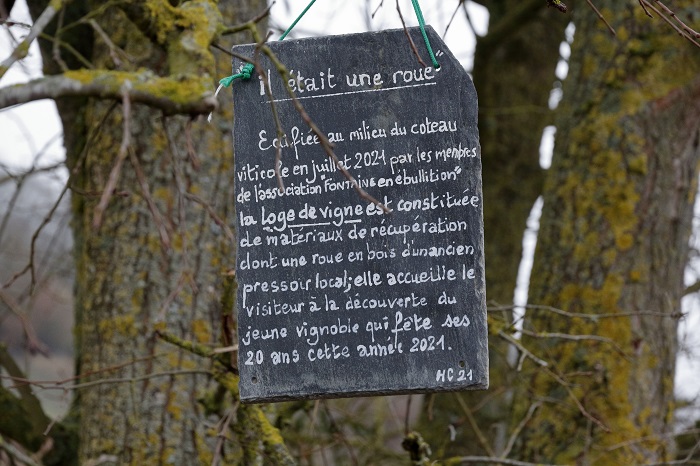 "il était une roue"
Edifiée au milieu du coteau
viticole en juillet 2021 par les membres
de l'association "FONTAINE en ébullition"
la loge de vigne est constituée
de matériaux de récupération
dont une roue en bois d'un ancien
pressoir local; elle accueille le
visiteur à la découverte du
jeune vignoble qui fête ses
20 ans cette année 2021.
HC 21